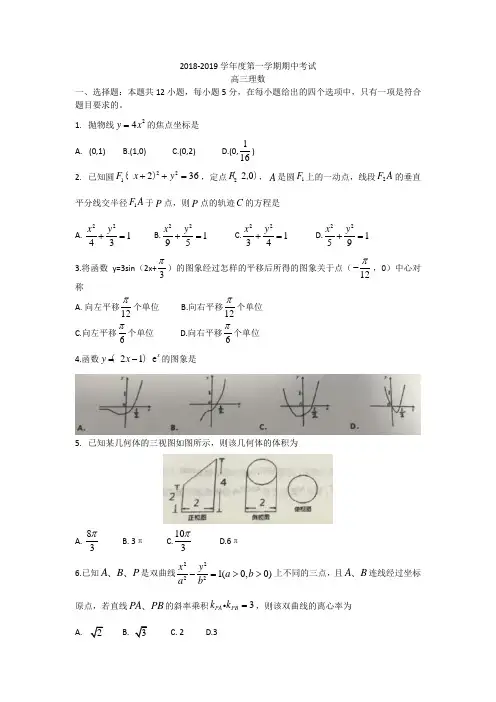 2018-2019 学年度第一学期期中考试
高三理数
一、选择题：本题共 12 小题，每小题 5 分，在每小题给出的四个选项中，只有一项是符合
题目要求的。
1. 抛物线 y = 4x² 的焦点坐标是
A. (0,1) B.(1,0) C.(0,2) D.(0, 1/16)
2. 已知圆 F₁:(x+2)²+y²=36，定点 F₂(2,0)，A 是圆 F₁ 上的一动点，线段 F₂A 的垂直
平分线交半径 F₁A 于 P 点，则 P 点的轨迹 C 的方程是
A. x²/4 + y²/3 = 1 B. x²/9 + y²/5 = 1 C. x²/3 + y²/4 = 1 D. x²/5 + y²/9 = 1
3.将函数 y=3sin（2x+π/3）的图象经过怎样的平移后所得的图象关于点（−π/12，0）中心对
称
A. 向左平移 π/12 个单位 B.向右平移 π/12 个单位
C.向左平移 π/6 个单位 D.向右平移 π/6 个单位
4.函数 y=(2x−1)eˣ 的图象是
A. B. C. D.
5. 已知某几何体的三视图如图所示，则该几何体的体积为
2 4 2
2
正视图 侧视图 俯视图
A. 8π/3 B. 3π C. 10π/3 D.6π
6.已知 A、B、P 是双曲线 x²/a² − y²/b² = 1(a>0,b>0) 上不同的三点，且 A、B 连线经过坐标
原点，若直线 PA、PB 的斜率乘积 k_PA•k_PB = 3，则该双曲线的离心率为
A. √2 B. √3 C. 2 D.3